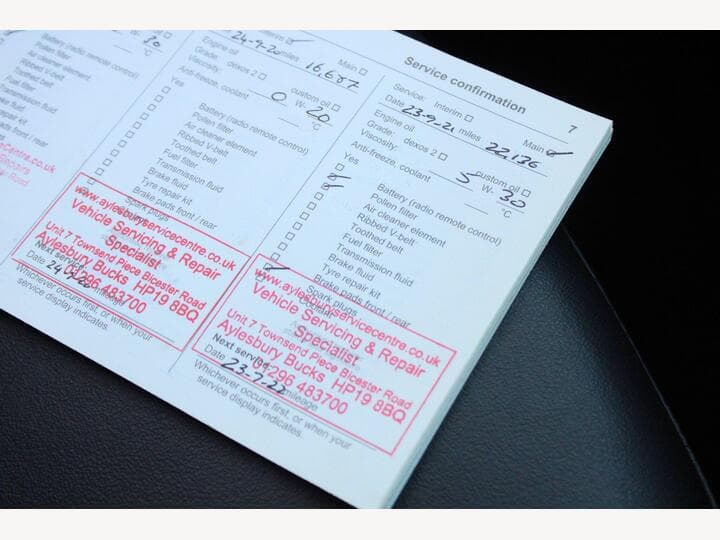 Battery (radio remote control)
Pollen filter
Air cleaner element
Ribbed V-belt
Toothed belt
Fuel filter
Transmission fluid
Brake fluid
Tyre repair kit
Brake pads front / rear
Interim
24-9-20 miles 16,687
Main
Engine oil
Grade: dexos 2 custom oil
Viscosity: 0 W- 20
Anti-freeze, coolant °C
Yes
Battery (radio remote control)
Pollen filter
Air cleaner element
Ribbed V-belt
Toothed belt
Fuel filter
Transmission fluid
Brake fluid
Tyre repair kit
Brake pads front / rear
Spark plugs
www.aylesburyservicecentre.co.uk
Vehicle Servicing & Repair
Specialist
Unit 7 Townsend Piece Bicester Road
Aylesbury Bucks HP19 8BQ
01296 483700
Next service:
Date mileage
Whichever occurs first, or when your
service display indicates.
Service confirmation
7
Service: Interim Main
Date 23-9-21 miles 22,136
Engine oil
Grade: dexos 2 custom oil
Viscosity: 5 W- 30
Anti-freeze, coolant °C
Yes
Battery (radio remote control)
Pollen filter
Air cleaner element
Ribbed V-belt
Toothed belt
Fuel filter
Transmission fluid
Brake fluid
Tyre repair kit
Brake pads front / rear
Spark plugs
Coolant
www.aylesburyservicecentre.co.uk
Vehicle Servicing & Repair
Specialist
Unit 7 Townsend Piece Bicester Road
Aylesbury Bucks HP19 8BQ
01296 483700
Next service:
Date 23-9-22 mileage
Whichever occurs first, or when your
service display indicates.